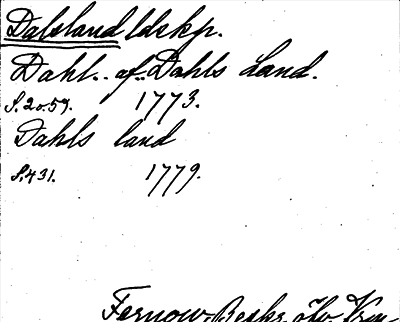 Dalsland ldskp.
Dahl.. af.. Dahls Land.
S. 20. 57. 1773.
Dahls land
S. 431. 1779.
Fernow, Beskr. öfv. Vrm